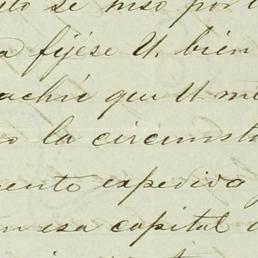 to se hiso por
a fijése U. bién
achié que U me
o la circumst
ento expedido
en esa capital